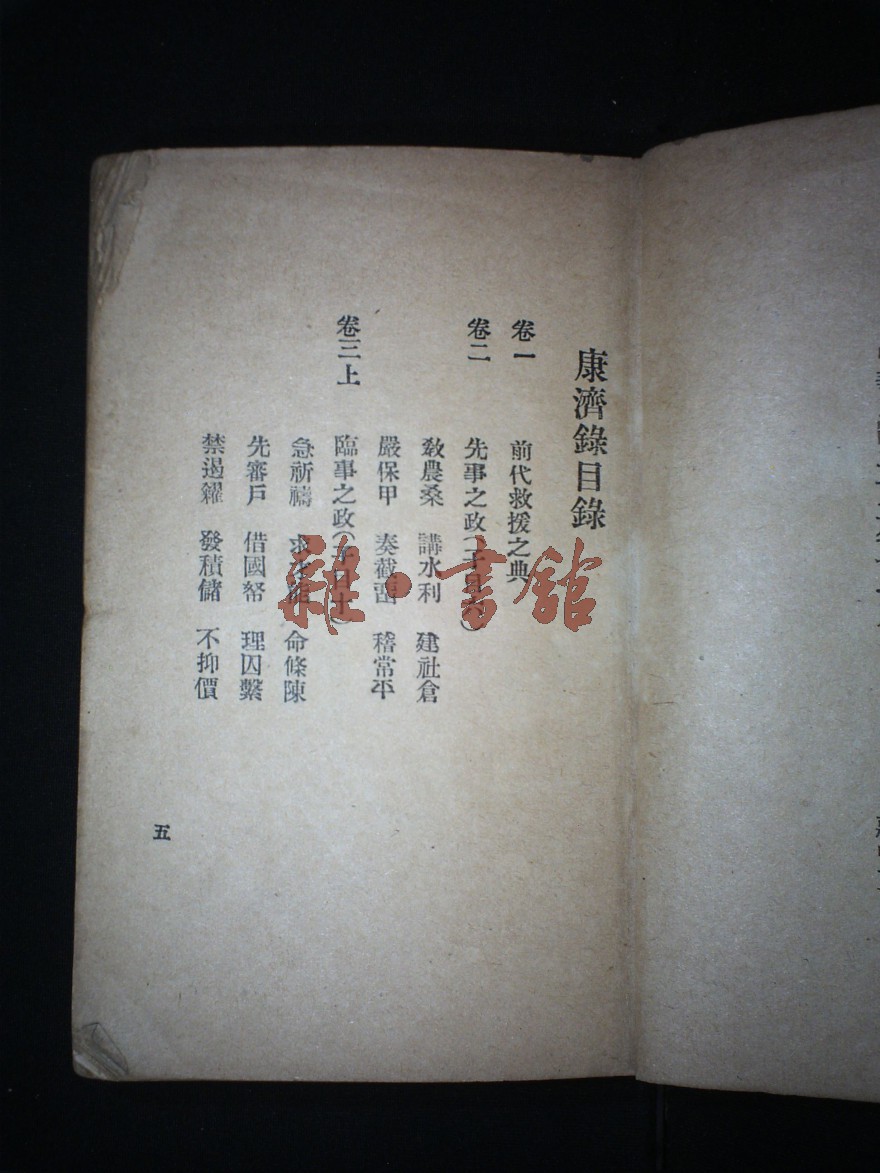 康濟錄目錄
卷一 前代救援之典
卷二 先事之政(子目六)
教農桑 講水利 建社倉
嚴保甲 奏截留 稽常平
卷三上 臨事之政(子目二十)
急祈禱 求才能 命條陳
先審戶 借國帑 理囚繫
禁遏糴 發積儲 不抑價
五
雜·書館